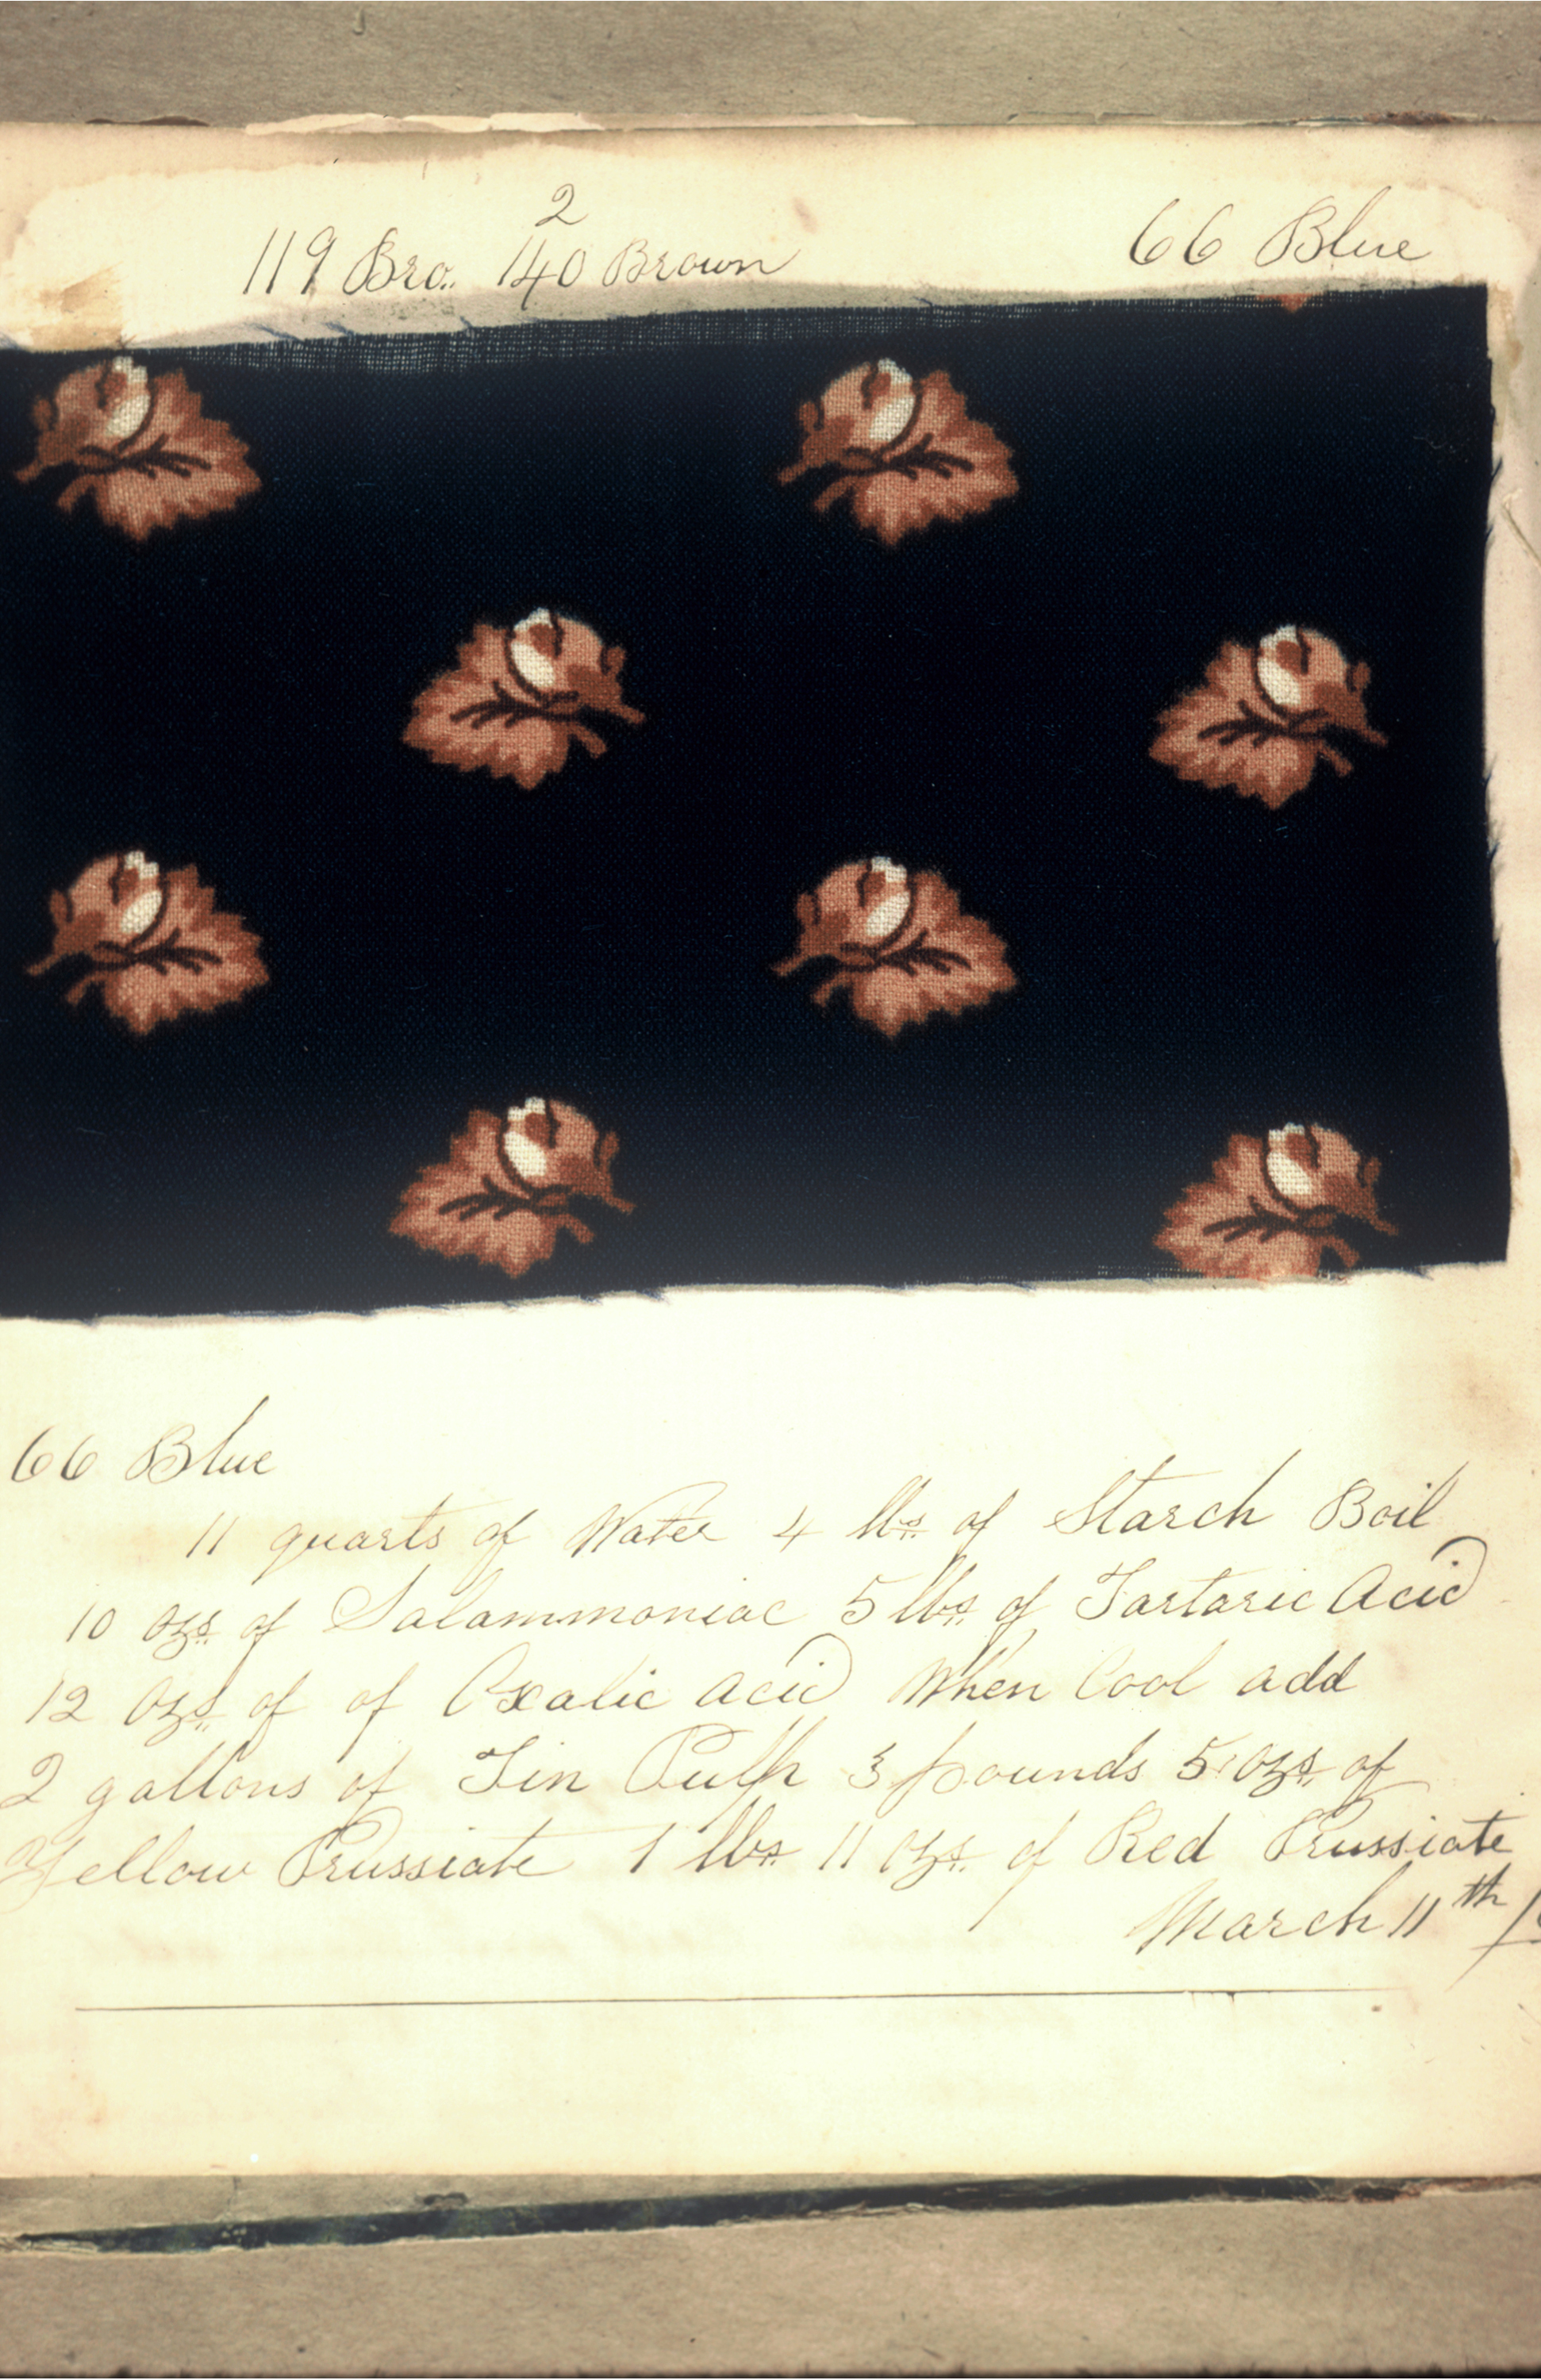 2
119 Bro. 140 Brown 66 Blue
66 Blue
11 quarts of Water 4 lbs of Starch Boil
10 ozs of Salammoniac 5 lbs of Tartaric Acid
12 ozs of of Oxalic Acid When Cool add
2 gallons of Tin Pulp 3 pounds 5 ozs of
Yellow Prussiate 1 lbs 11 ozs of Red Prussiate
March 11th